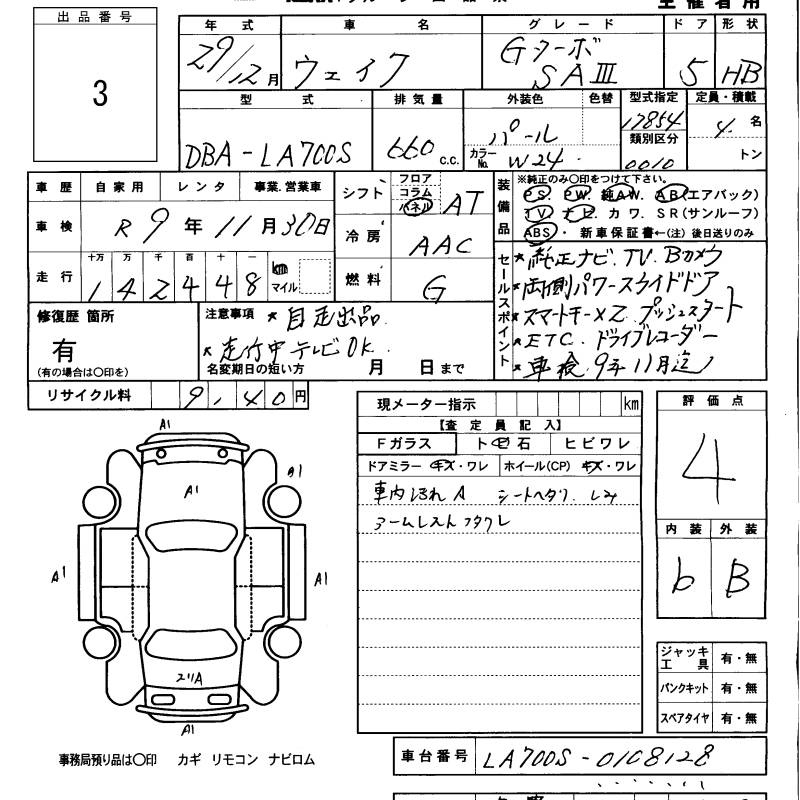 出品番号
3
年式 車名 グレード ドア 形状
29/12月 ウェイク Gターボ SAⅢ 5 HB
型式 排気量 外装色 色替 型式指定 定員・積載
DBA-LA700S 660 c.c. パール カラーNo. W24 17854 類別区分 0010 4 名 トン
車歴 自家用 レンタ 事業.営業車
車検 R9年11月30日
走行 十万 万 千 百 十 一
1 4 2 4 4 8 km マイル
シフト フロア コラム パネル AT
冷房 AAC
燃料 G
装備品 ※純正のみ○印をつけて下さい。
PS. PW. 純AW. AB(エアバック)
TV. ナビ. カワ. SR(サンルーフ)
ABS・ 新車保証書←(注) 後日送りのみ
セールスポイント
★純正ナビ.TV.Bカメラ
★両側パワースライドドア
★スマートキー×2.プッシュスタート
★ETC.ドライブレコーダー
★車検.9年11月迄
修復歴 箇所
有
(有の場合は○印を)
注意事項 ★自走出品
★走行中テレビOK.
名変期日の短い方 月 日まで
リサイクル料 9,40円
現メーター指示 km
【査定員記入】
Fガラス ト石 ヒビワレ
ドアミラー キズ・ワレ ホイール(CP) キズ・ワレ
車内汚れA シートヘタリ.シミ
アームレストフタワレ
評価点
4
内装 外装
b B
A1
A1
A1
A1
A1
A1
A1
ジャッキ工具 有・無
パンクキット 有・無
スペアタイヤ 有・無
事務局預り品は○印 カギ リモコン ナビロム
車台番号 LA700S-0108128